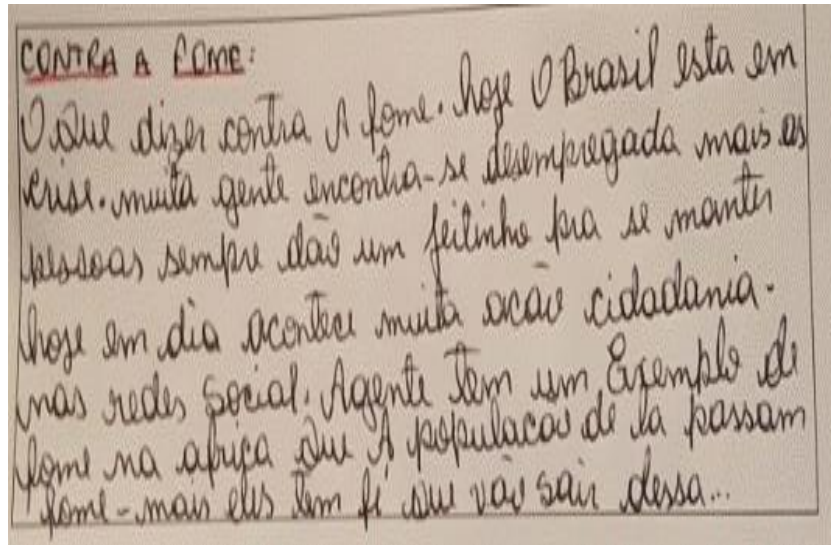 CONTRA A FOME:
O que dizer contra A fome. hoje O Brasil esta em
crise. muita gente encontra-se desempregada mais as
pessoas sempre dão um jeitinho pra se manter
hoje em dia acontece muita acão cidadania.
nas redes social. Agente tem um Exemplo de
fome na africa que A populacao de la passam
fome-mais eles tem fé que vão sair dessa...